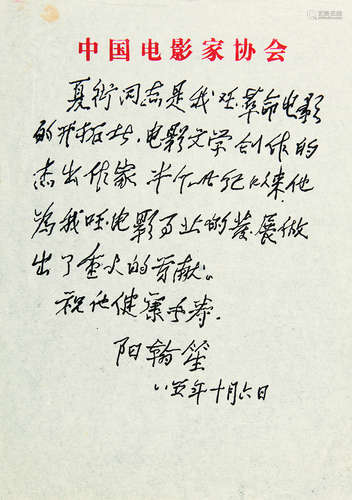 中国电影家协会
夏衍同志是我国革命电影
的开拓者，电影文学创作的
杰出作家，半个世纪以来他
为我国电影事业的发展做
出了重大的贡献。
祝他健康长寿。
阳翰笙
八五年十月六日